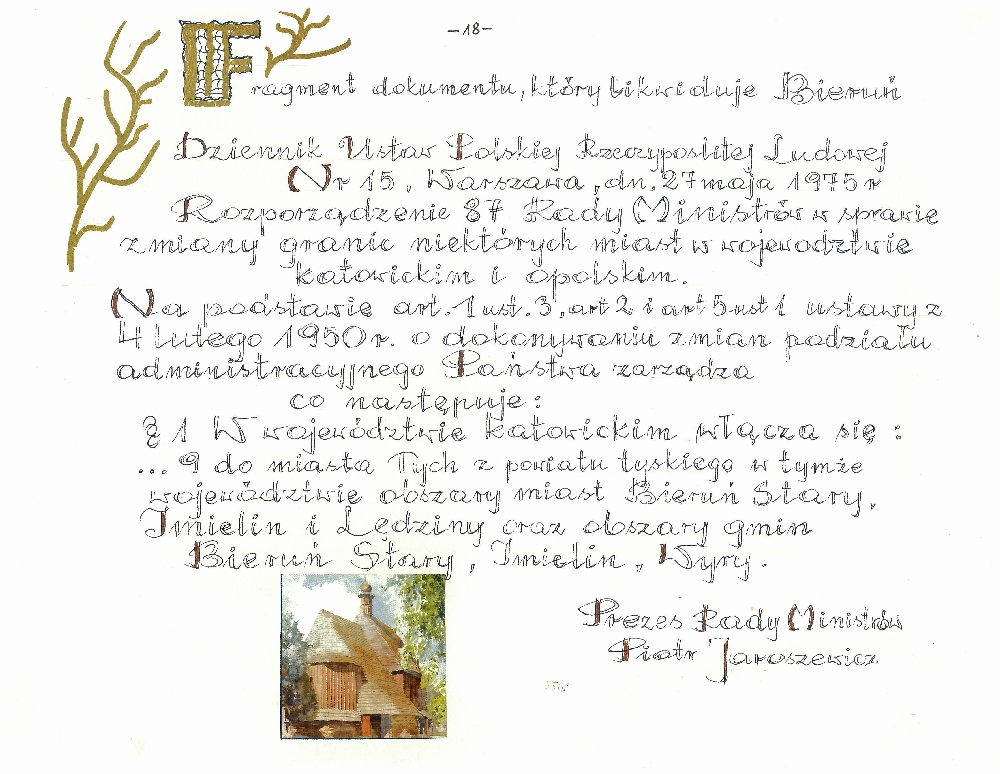 -18-
Fragment dokumentu, który likwiduje Bieruń
Dziennik Ustaw Polskiej Rzeczypospolitej Ludowej
Nr 15, Warszawa, dn. 27 maja 1975 r
Rozporządzenie 87 Rady Ministrów w sprawie
zmiany granic niektórych miast w województwie
katowickim i opolskim.
Na podstawie art. 1 ust. 3, art 2 i art 5 ust 1 ustawy z
4 lutego 1950 r. o dokonywaniu zmian podziału
administracyjnego Państwa zarządza
co następuje:
§ 1 W województwie katowickim włącza się :
... 9 do miasta Tych z powiatu tyskiego w tymże
województwie obszary miast Bieruń Stary,
Imielin i Lędziny oraz obszary gmin
Bieruń Stary, Imielin, Wyry.
Prezes Rady Ministrów
Piotr Jaroszewicz